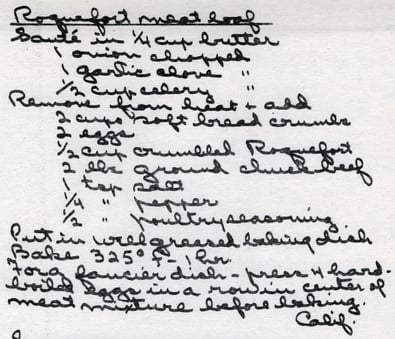 Roquefort meat loaf
Sauté in 1/4 cup butter
1 onion chopped
1 garlic clove "
1/2 cup celery "
Remove from heat + add
2 cups soft bread crumbs
2 eggs
1/2 cup crumbled Roquefort
2 lbs ground chuck beef
1 tsp salt
1/4 " pepper
1/2 " poultry seasoning
Put in well greased baking dish
Bake 325° F - 1 hr.
For a fancier dish - press 4 hard-
boiled eggs in a row in center of
meat mixture before baking.
Calif.